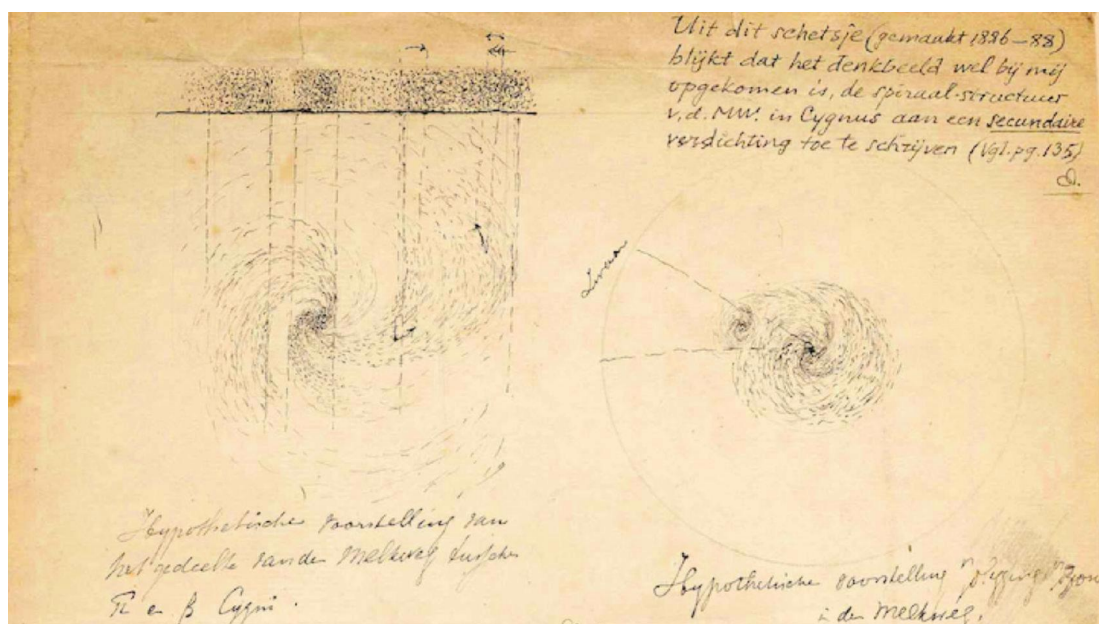 Uit dit schetsje (gemaakt 1886–88)
blijkt dat het denkbeeld wel bij mij
opgekomen is, de spiraal-structuur
v.d. MW. in Cygnus aan een secundaire
verdichting toe te schrijven (Vgl. pg. 135)
Hypothetische voorstelling van
het gedeelte van den Melkweg tusschen
π en β Cygni.
Hypothetische voorstelling
in den Melkweg.